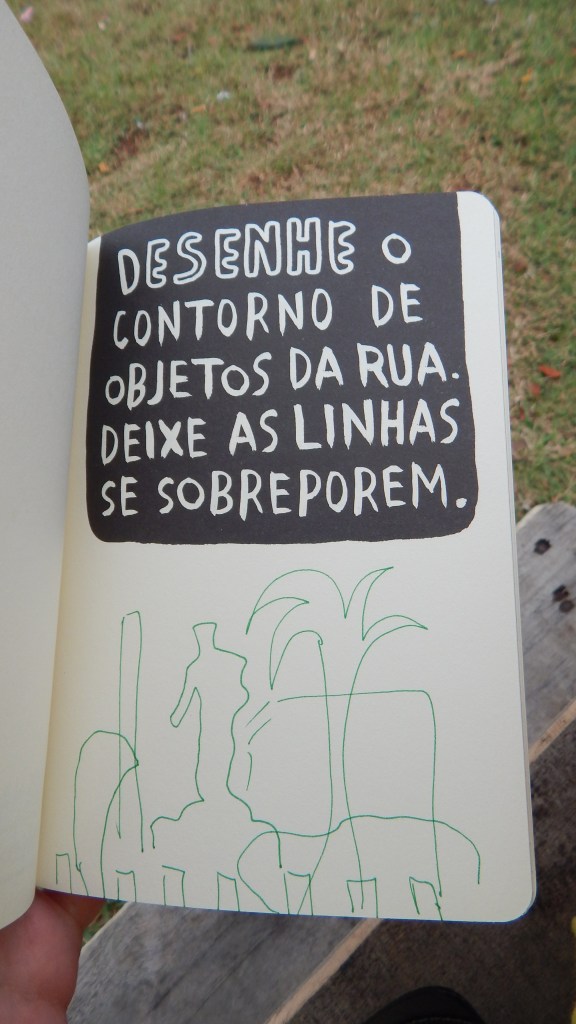 DESENHE O
CONTORNO DE
OBJETOS DA RUA.
DEIXE AS LINHAS
SE SOBREPOREM.